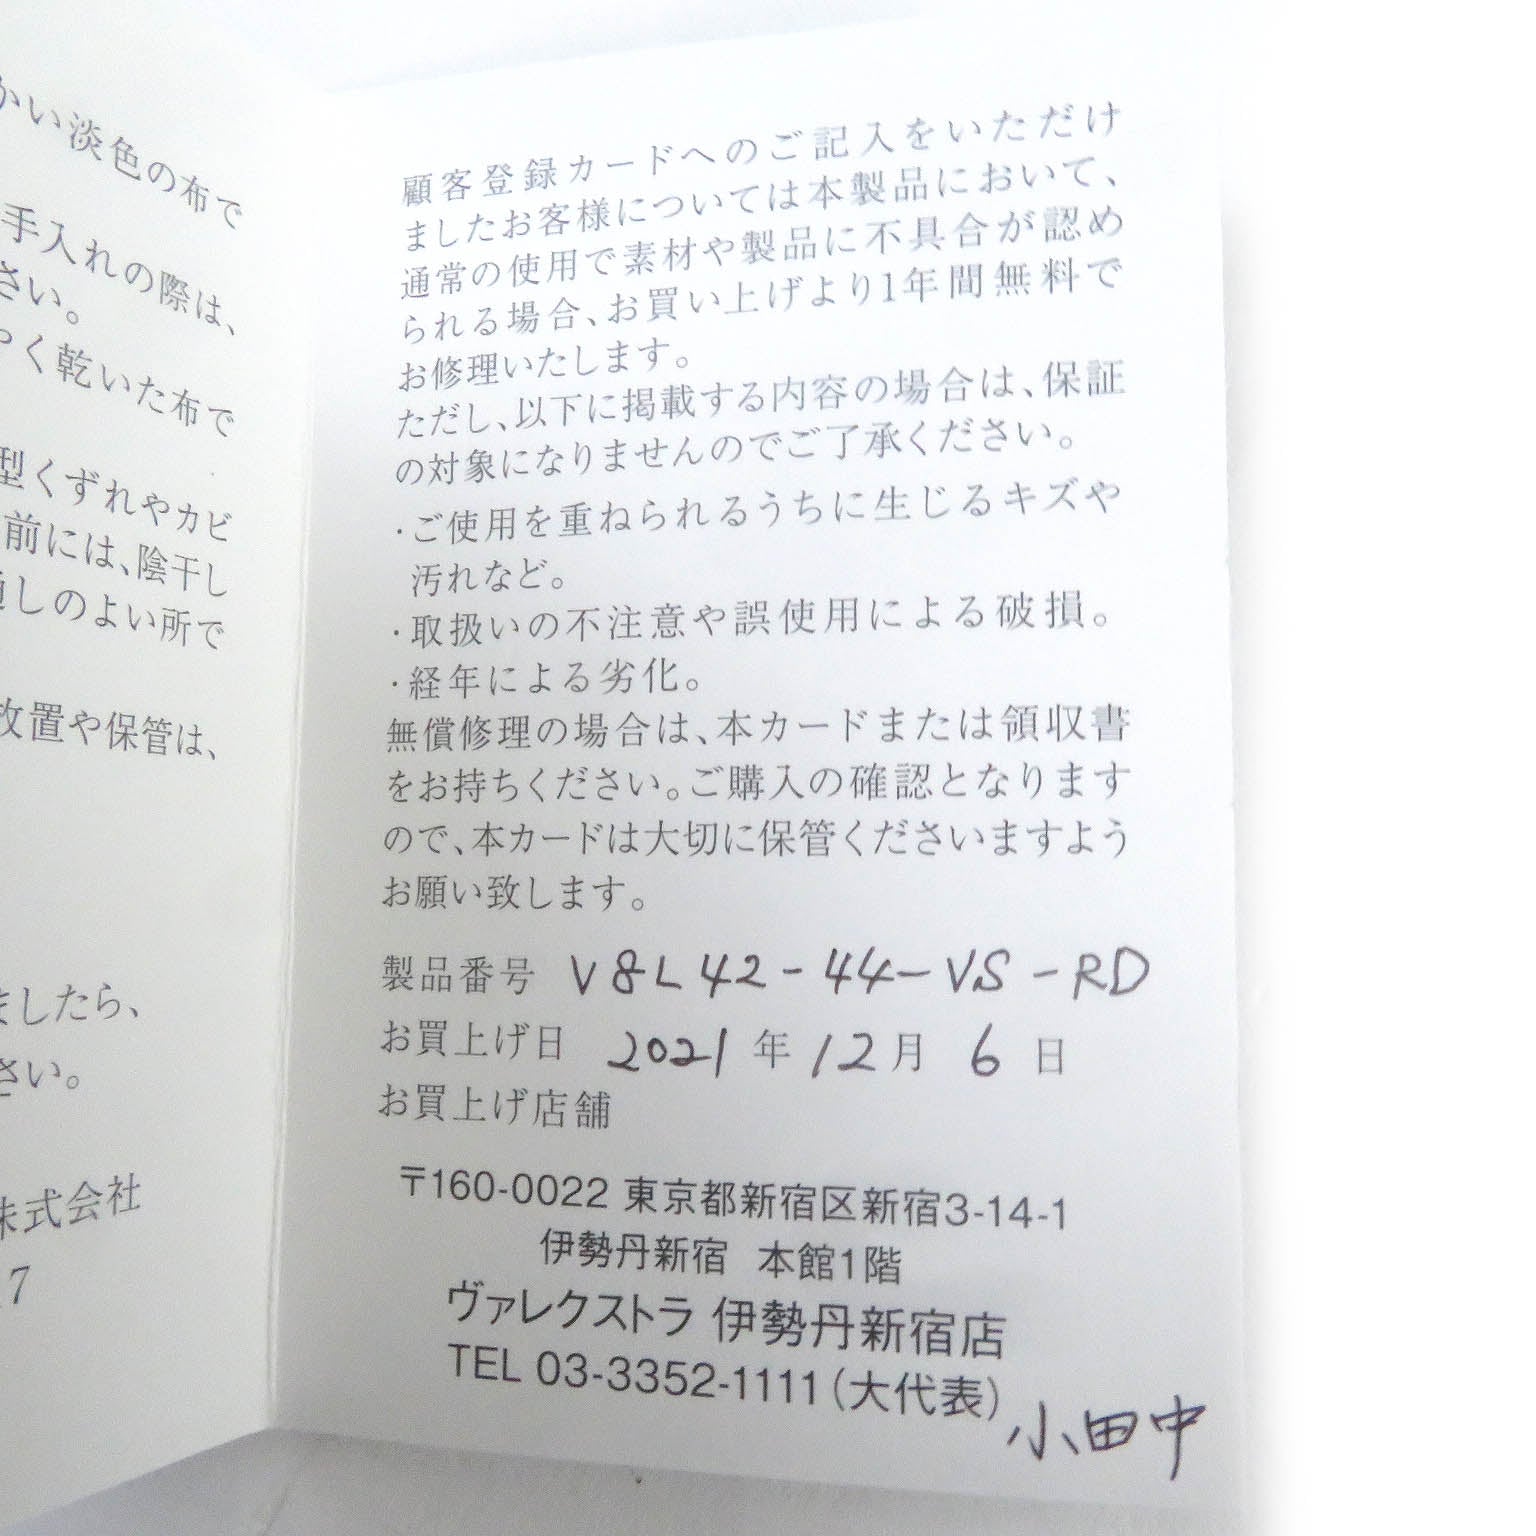 かい淡色の布で
手入れの際は、
さい。
やく乾いた布で
型くずれやカビ
前には、陰干し
通しのよい所で
放置や保管は、
ましたら、
さい。
株式会社
7
顧客登録カードへのご記入をいただけ
ましたお客様については本製品において、
通常の使用で素材や製品に不具合が認め
られる場合、お買い上げより1年間無料で
お修理いたします。
ただし、以下に掲載する内容の場合は、保証
の対象になりませんのでご了承ください。
・ご使用を重ねられるうちに生じるキズや
汚れなど。
・取扱いの不注意や誤使用による破損。
・経年による劣化。
無償修理の場合は、本カードまたは領収書
をお持ちください。ご購入の確認となります
ので、本カードは大切に保管くださいますよう
お願い致します。
製品番号 V8L42-44-VS-RD
お買上げ日 2021年12月6日
お買上げ店舗
〒160-0022 東京都新宿区新宿3-14-1
伊勢丹新宿 本館1階
ヴァレクストラ 伊勢丹新宿店
TEL 03-3352-1111（大代表）
小田中